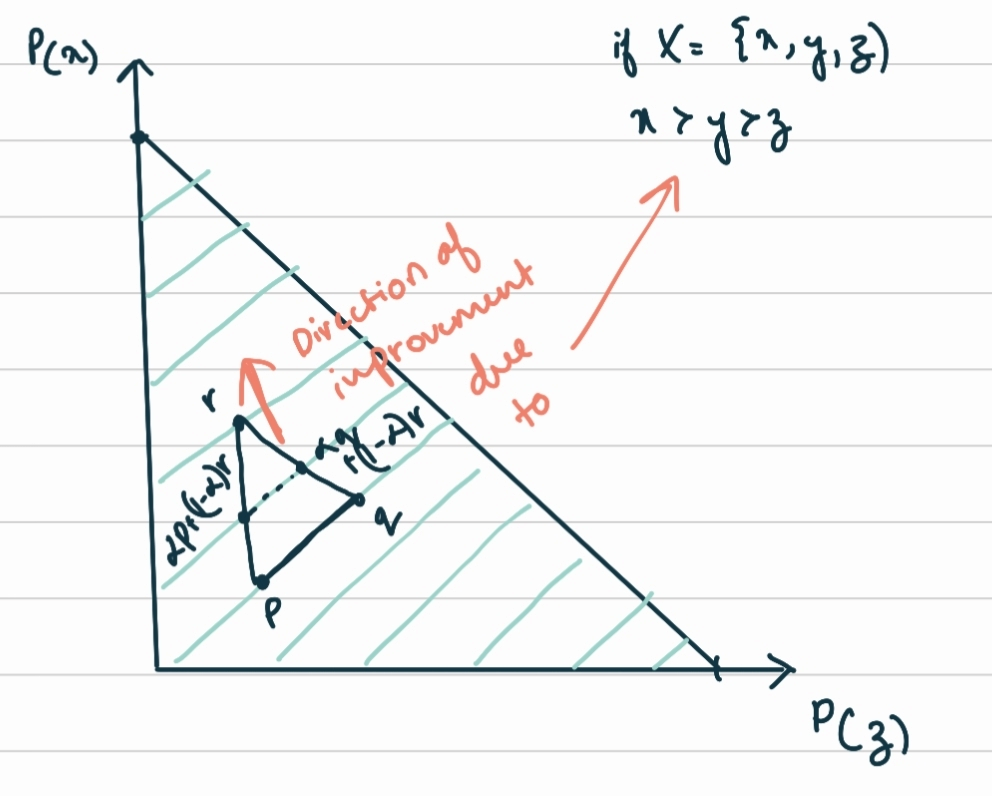 P(x)
if X = {x, y, z)
x > y > z
Direction of
improvement
due
to
r
αq
+(1-α)r
αp+(1-α)r
q
p
P(z)